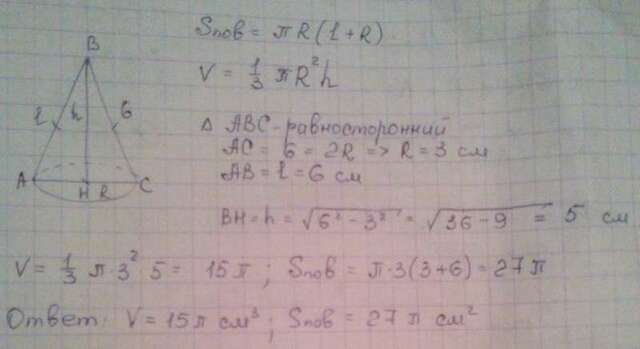 Sпов = πR(l+R)
V = 1/3 πR²h
B
l h 6
A H R C
Δ ABC - равносторонний
AC = 6 = 2R => R = 3 см
AB = l = 6 см
BH = h = √6² - 3² = √36 - 9 = 5 см
V = 1/3 π·3²·5 = 15π; Sпов = π·3(3+6) = 27π
Ответ: V = 15π см³; Sпов = 27π см²